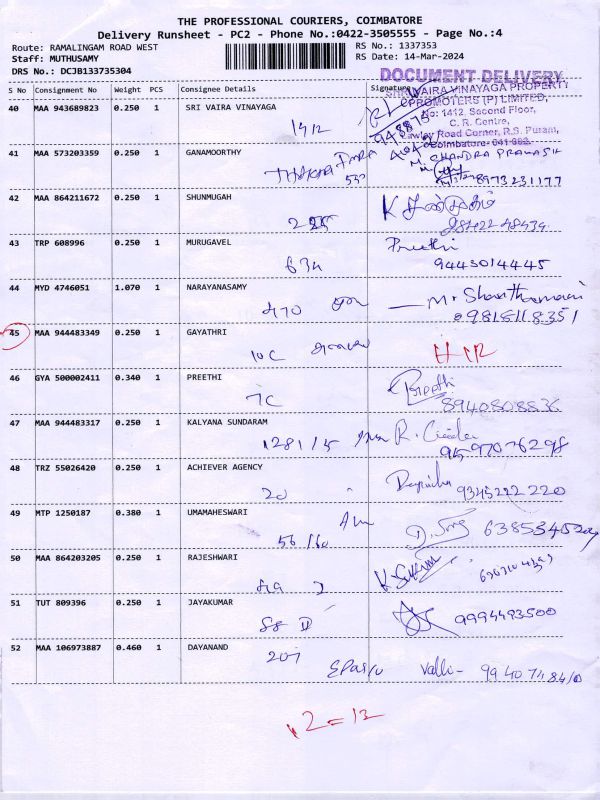 THE PROFESSIONAL COURIERS, COIMBATORE
Delivery Runsheet - PC2 - Phone No.:0422-3505555 - Page No.:4
Route: RAMALINGAM ROAD WEST
RS No.: 1337353
Staff: MUTHUSAMY
RS Date: 14-Mar-2024
DRS No.: DCJB133735304
DOCUMENT DELIVERY
S No Consignment No Weight PCS Consignee Details Signature
VAIRA VINAYAGA PROPERTY
PROMOTERS (P) LIMITED,
No: 1412, Second Floor,
C. R. Centre,
Road Corner, R.S. Puram,
Coimbatore- 641 002.
40 MAA 943689823 0.250 1 SRI VAIRA VINAYAGA
1412
41 MAA 573203359 0.250 1 GANAMOORTHY
M. CHANDRA PRAKASH
8973231177
42 MAA 864211672 0.250 1 SHUNMUGAH
43 TRP 608996 0.250 1 MURUGAVEL
634
Preethi
9443014445
44 MYD 4746051 1.070 1 NARAYANASAMY
45 MAA 944483349 0.250 1 GAYATHRI
10C
46 GYA 500002411 0.340 1 PREETHI
7C
Preethi
8940808836
47 MAA 944483317 0.250 1 KALYANA SUNDARAM
1281/5
9597076298
48 TRZ 55026420 0.250 1 ACHIEVER AGENCY
20
9345222220
49 MTP 1250187 0.380 1 UMAMAHESWARI
56/60
50 MAA 864203205 0.250 1 RAJESHWARI
51 TUT 809396 0.250 1 JAYAKUMAR
9994493500
52 MAA 106973887 0.460 1 DAYANAND
207
Valli - 9940748410
12 = 12